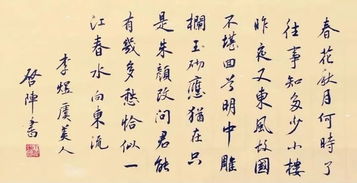 春花秋月何時了
往事知多少小樓
昨夜又東風故國
不堪回首明中雕
欄玉砌應猶在只
是朱顏改問君能
有幾多愁恰似一
江春水向東流
李煜虞美人
啓陣書